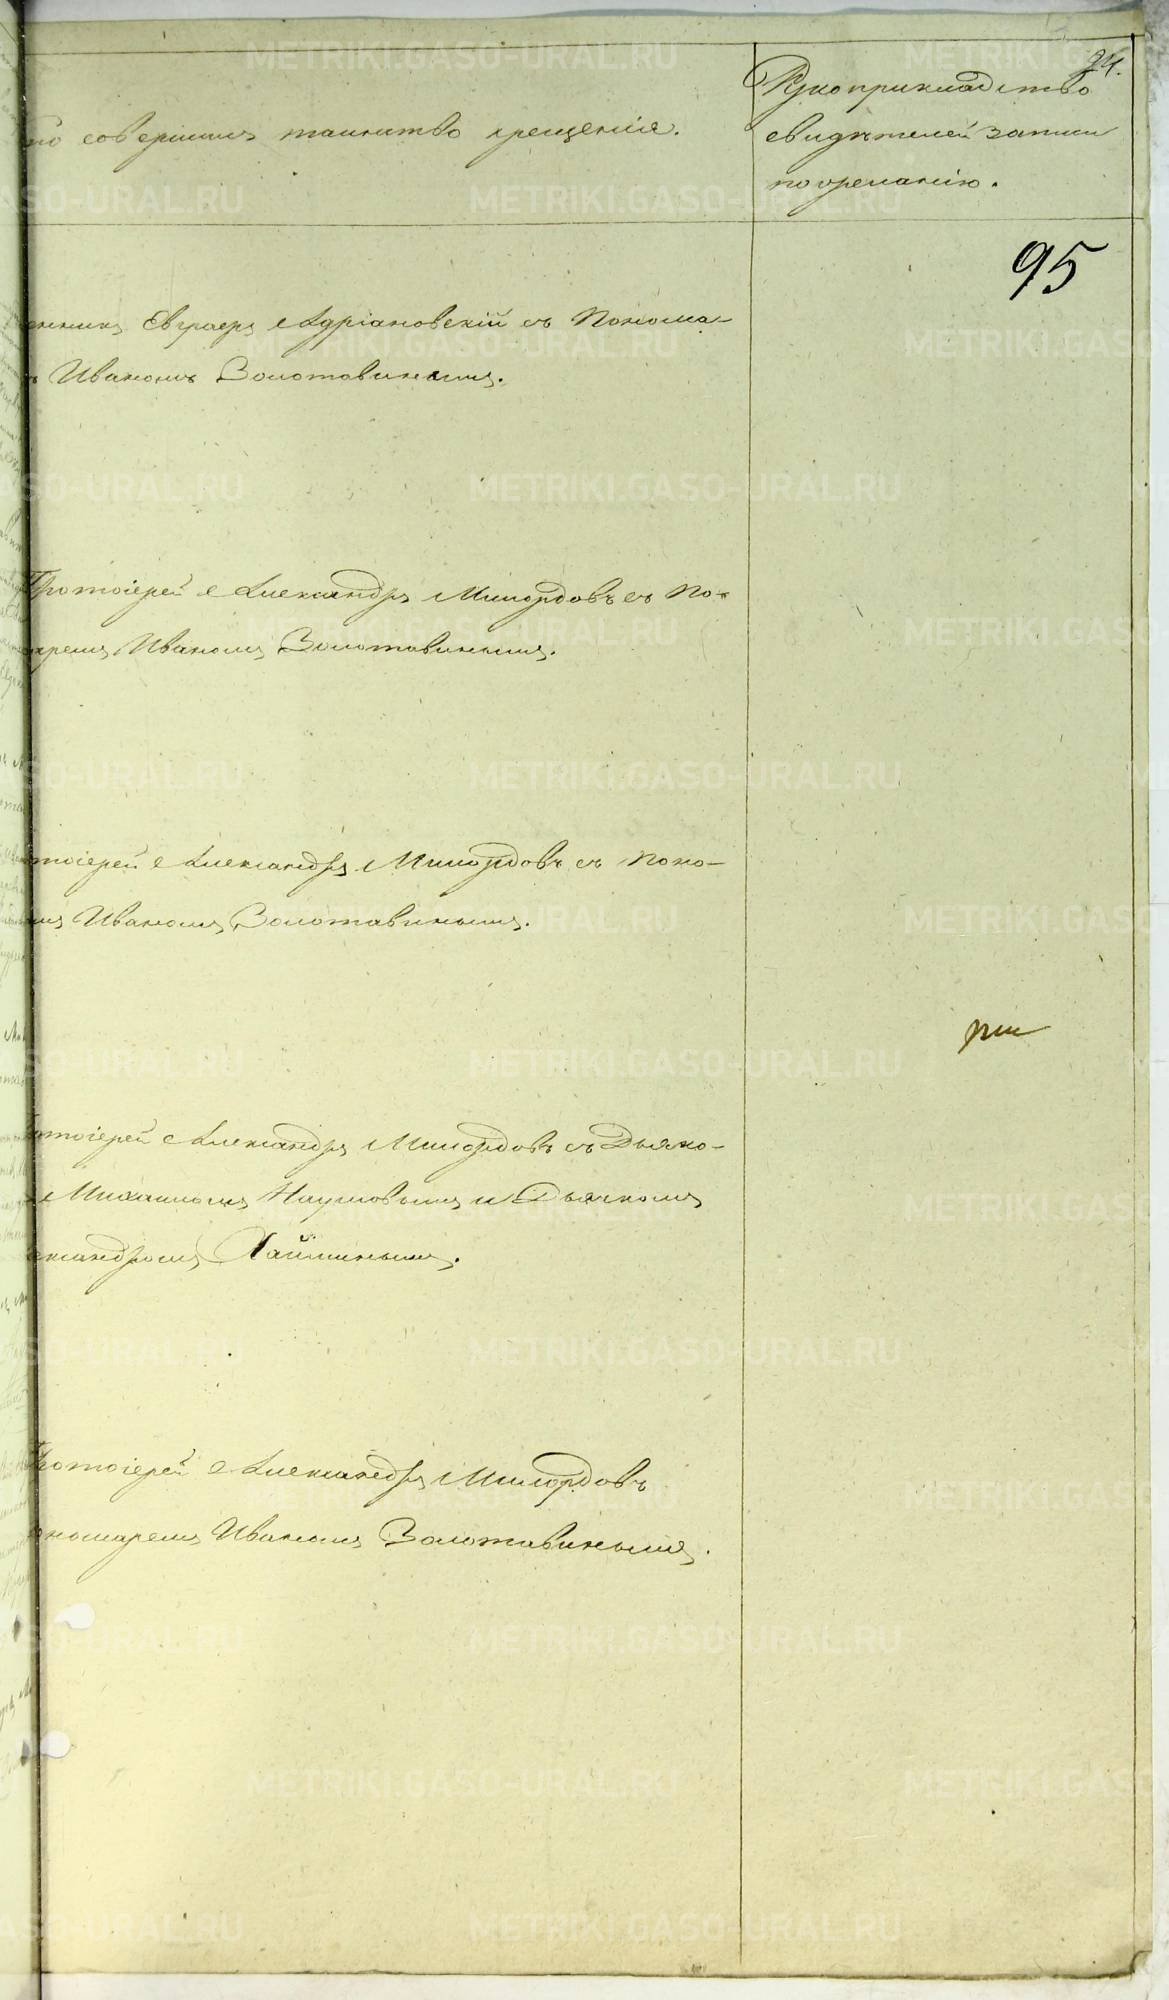 94.
то совершилъ таинство крещенія.
Рукоприкладство
свидѣтелей записи
по желанію.
95
енникъ Евграфъ Адріановскій съ Понома-
ъ Иваномъ Золотавинымъ.
Протоіерей Александръ Милордовъ съ По-
аремъ Иваномъ Золотавинымъ.
тоіерей Александръ Милордовъ съ Поно-
мъ Иваномъ Золотавинымъ.
отоіерей Александръ Милордовъ съ Дьяко-
Михаиломъ Наумовымъ и Дьячкомъ
ександромъ Хайминымъ.
Протоіерей Александръ Милордовъ
ономаремъ Иваномъ Золотавинымъ.
METRIKI.GASO-URAL.RU